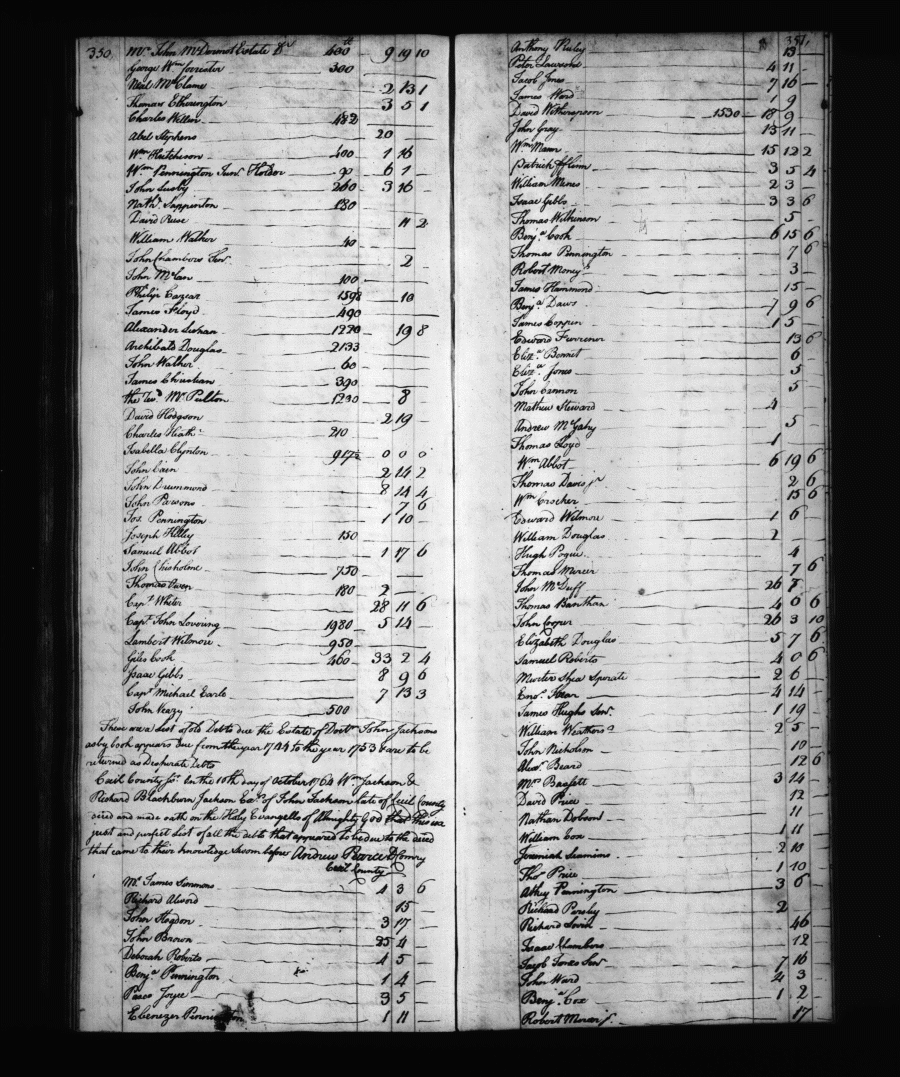 350
Mr. John McDermot Estate Dr. 400 tb 9 19 10
George Wm. Forrester 300
Neal McClame 2 13 1
Thomas Etherington 3 5 1
Charles Willson 482
Abel Stephens 20
Wm. Hutcheson 400 1 16
Wm. Pennington Junr. 90 6 1
John Lusby 260 3 16
Nathl. Sappenton 180
David Ruse 11 2
William Walker 40
John Chambers Senr. 2
John McCan 100
Philip Cazear 1598 10
James Floyd 490
Alexander 1220 19 8
Archibald Douglas 2133
John Walker 60
James Christian 390
the Revd. Mr. Pulton 1230 8
David Hodgson 2 19
Charles Heath 210
Isabella Clynton 917 0 0 0
John Cain 2 14 2
John Drummond 8 14 4
John Parsons 7 6
Jos. Pennington 1 10
Joseph Kelley 150
Samuel Abbot 1 17 6
John Chisholme 750
Thomas Owen 180 2
Capt. Whiter 28 11 6
Capt. John Lovering 1980 5 14
Lambert Wilmore 950
Giles Cook 460 33 2 4
Isaac Gibbs 8 9 6
Capt. Michael Earle 7 13 3
John Veazy 500
These are a List of Old Debts due the Estate of Doctr. John Jacksons
as by book appears due from the year 1744 to the year 1753 & are to be
returned as Desperate Debts
Cecil County Sc. On the 10th day of October 1764 Wm. Jackson &
Richard Blackburn Jackson Exrs. of John Jackson late of Cecil County
decd and made oath on the Holy Evangells of Almighty God that this is a
just and perfect List of all the debts that appeared to be due to the decd
that came to their knowledge Sworn before Andrew Pearce D Comry
Cecil County
Mr. James Simmons 4 3 6
Richard Alword 15
John Hogdon 3 17
John Brown 25 4
Deborah Roberts 4 5
Benja. Pennington 1 4
Pasco Joyce 3 5
Ebenezer Pennington 1 11
351
Anthony 13
Peter Lawrence 4 11
Jacob Jones 7 16
James Ward 1 9
David Wetherspoon 1530 18 9
John Gray 13 11
Wm. Mann 15 12 2
Patrick Flinn 3 5 4
William Mines 2 3
Isaac Gibbs 3 3 6
Thomas Wilkinson 5
Benja. Cook 6 15 6
Thomas Pennington 7 6
Robert Money 3
James Hammond 15
Benja. Daws 7 9 6
James Coppin 1 5
Edward Furroner 13 6
Eliza. Bennet 6
Eliza. Jones 5
John Cannon 5
Mathew Steward 4
Andrew McGaby 5
Thomas Loyd 1
Wm. Abbot 6 19 6
Thomas Davis jr. 2 6
Wm. Crocker 15 6
Edward Wilmore 1 6
William Douglas 2
Hugh Pogue 4
Thomas Mercer 7 6
John McDuff 26 7
Thomas Banthan 4 0 6
John Cooper 26 3 10
Elizabeth Douglas 5 7 6
Samuel Roberts 4 0 6
Murter Shea Sperate 2 6
Eno. Kear 4 14
James Hughs Senr. 1 19
William Weathers 2 5
John Nicholson 10
Alexr. Beard 12 6
Mrs. Bassett 3 14
David Price 12
Nathan Dobson 11
William Cox 1 11
Jeremiah 2 10
Thos. Price 1 10
Athey Pennington 3 6
Richard Pursley 2
Richard 46
Isaac Chambers 12
Jacob Jones Senr. 7 16
John Ward 24 3
Benja. Cox 1 2
Robert 17